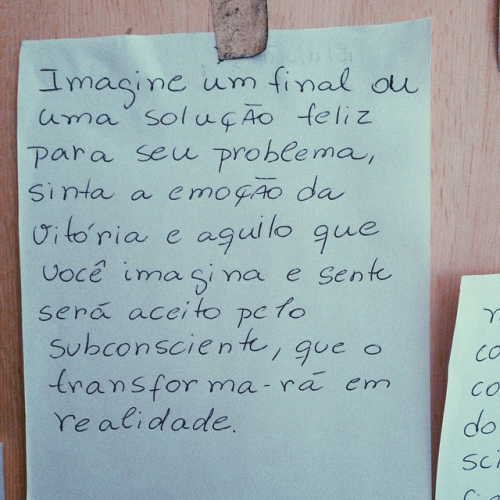 Imagine um final ou
uma solução feliz
para seu problema,
sinta a emoção da
vitória e aquilo que
você imagina e sente
será aceito pelo
subconsciente, que o
transforma-rá em
realidade.
co
co
do
sci